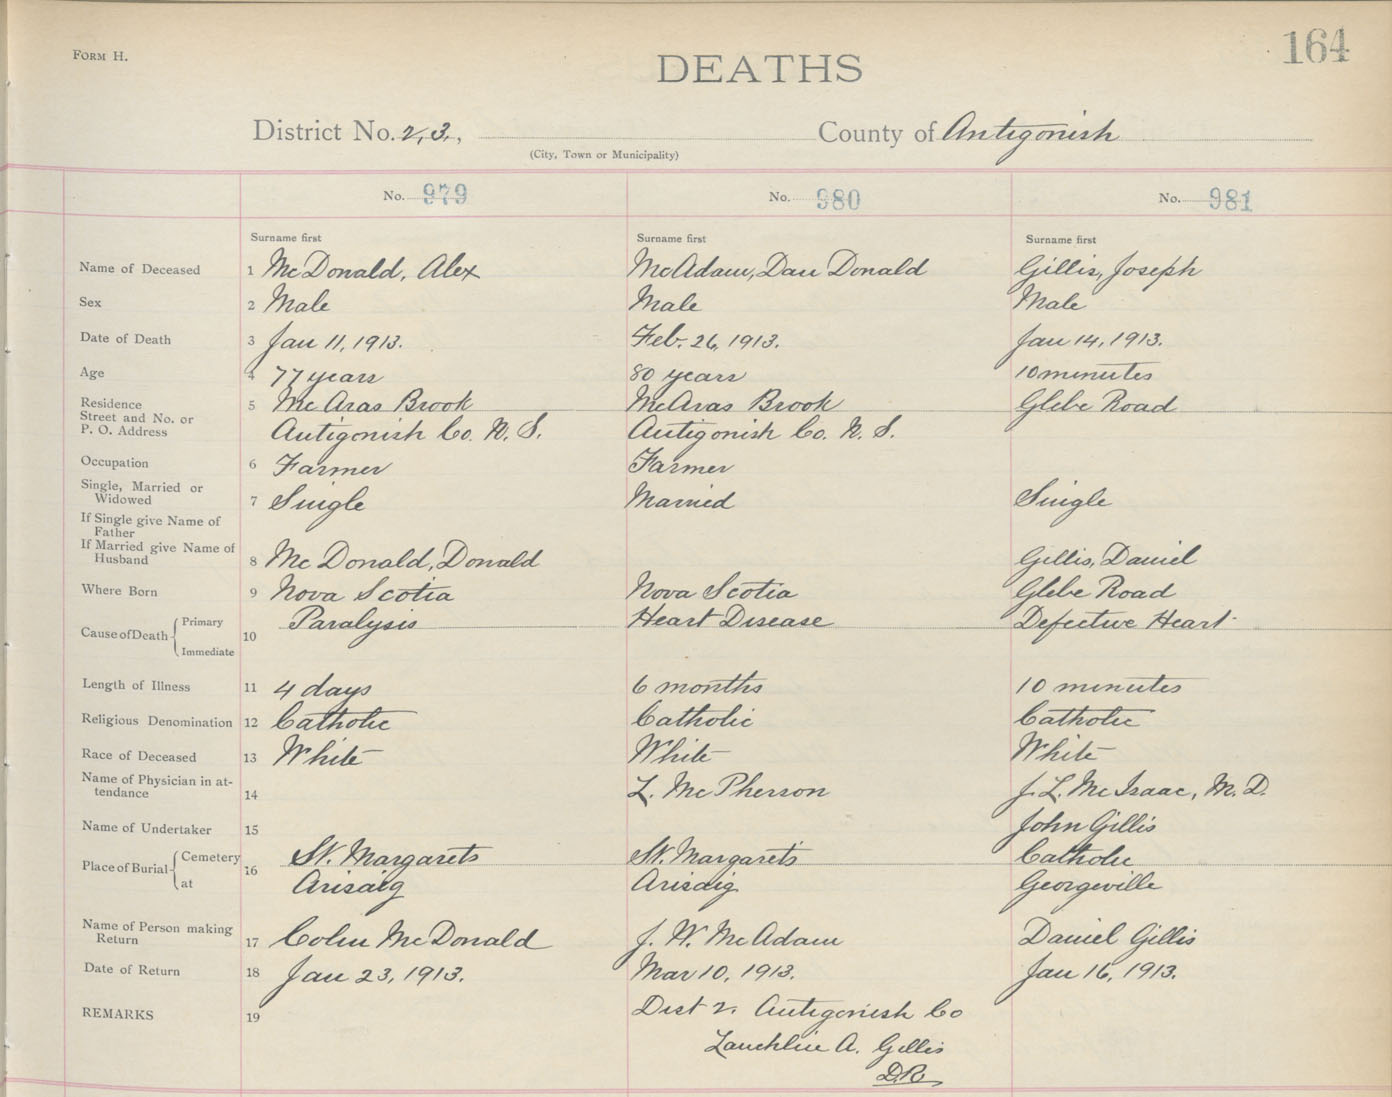 FORM H.
164
DEATHS
District No. 2, 3, , County of Antigonish
(City, Town or Municipality)
No. 979 No. 980 No. 981
Surname first Surname first Surname first
Name of Deceased 1 McDonald, Alex McAdam, Dan Donald Gillis, Joseph
Sex 2 Male Male Male
Date of Death 3 Jan 11, 1913. Feb. 26, 1913. Jan 14, 1913.
Age 4 77 years 80 years 10 minutes
Residence 5 McAras Brook McAras Brook Glebe Road
Street and No. or
P. O. Address Antigonish Co. N. S. Antigonish Co. N. S.
Occupation 6 Farmer Farmer
Single, Married or
Widowed 7 Single Married Single
If Single give Name of
Father
If Married give Name of
Husband 8 McDonald, Donald Gillis, Daniel
Where Born 9 Nova Scotia Nova Scotia Glebe Road
Cause of Death Primary 10 Paralysis Heart Disease Defective Heart
Immediate
Length of Illness 11 4 days 6 months 10 minutes
Religious Denomination 12 Catholic Catholic Catholic
Race of Deceased 13 White White White
Name of Physician in at-
tendance 14 L. McPherson J. L. McIsaac, M. D.
Name of Undertaker 15 John Gillis
Place of Burial Cemetery 16 St. Margarets St. Margarets Catholic
at Arisaig Arisaig Georgeville
Name of Person making
Return 17 Colin McDonald J. W. McAdam Daniel Gillis
Date of Return 18 Jan 23, 1913. Mar 10, 1913. Jan 16, 1913.
REMARKS 19 Dist 2. Antigonish Co
Lauchlin A. Gillis
D.R.